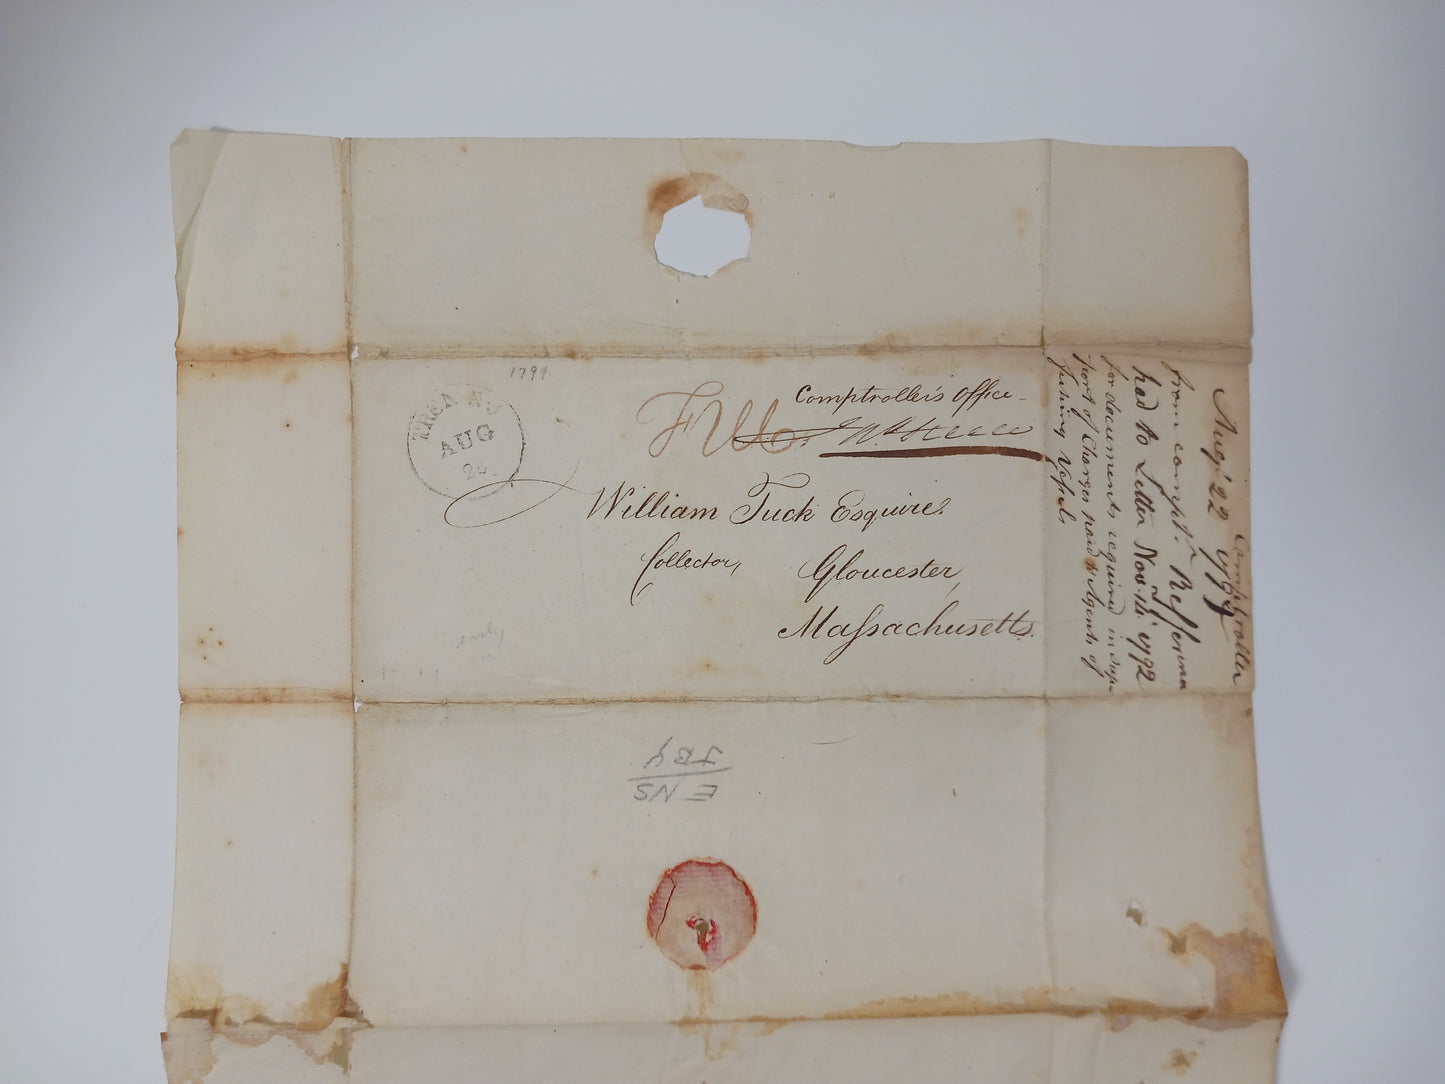 1799
TREN N.J
AUG
28
Free
Comptroller's Office
Jno Steele
William Tuck Esquire.
Collector,
Gloucester,
Massachusetts.
early
Comptroller
Aug' 22 1799
from Compt.r Refference
had to Letter Nov. 14 1792
for documents required in sup-
port of Charges paid to Agents of
fishing Vessels
JBY
E NS